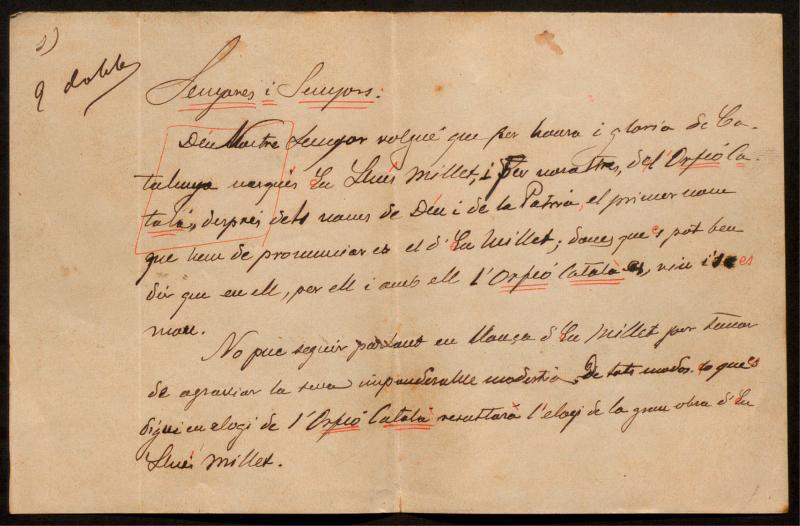 1)
9 doble
Senyores i Senyors:
Déu Nostre Senyor volgué que per honra i gloria de Ca-
talunya nasqués En Lluís Millet, i per nosaltres, de l'Orfeó Ca-
talà, després dels noms de Déu i de la Patria, el primer nom
que hem de pronunciar es el d'En Millet; doncs que's pot ben
dir que en ell, per ell i amb ell l'Orfeó Català es, viu i es
mou.
No puc seguir parlant en llaor d'En Millet por temor
de agraviar la seva imponderable modestia. De tots modos lo que's
digui en elogi de l'Orfeó Català resultarà l'elogi de la gran obra d'En
Lluís Millet.